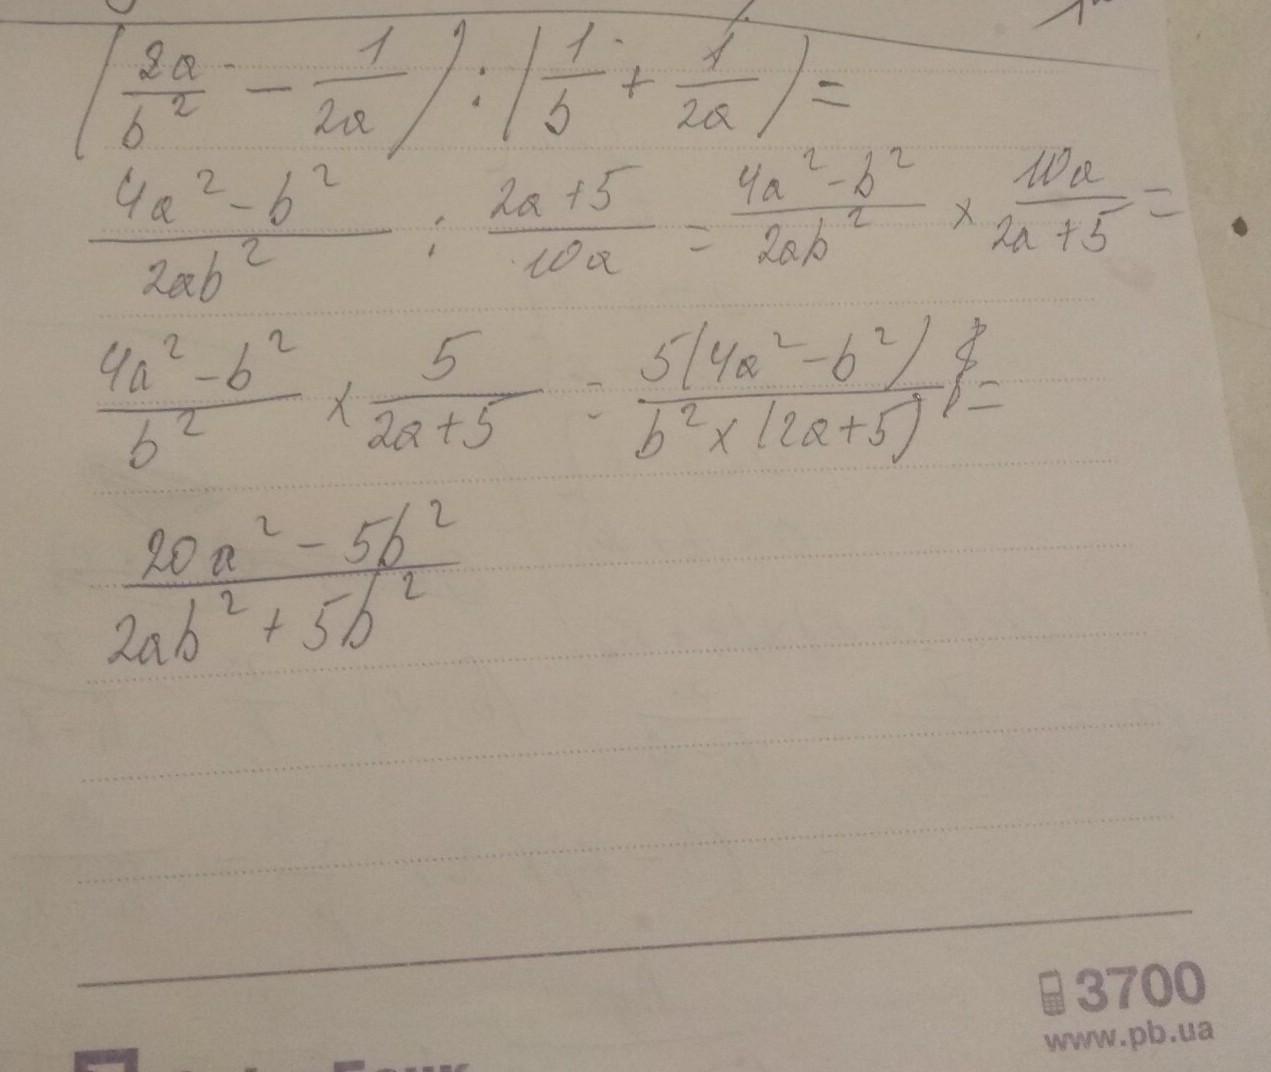 (2a/b² - 1/2a) : (1/5 + 1/2a) =
4a² - b²/2ab² : 2a + 5/10a = 4a² - b²/2ab² × 10a/2a + 5 =
4a² - b²/b² × 5/2a + 5 = 5(4a² - b²)/b² × (2a + 5) =
20a² - 5b²/2ab² + 5b²
3700
www.pb.ua